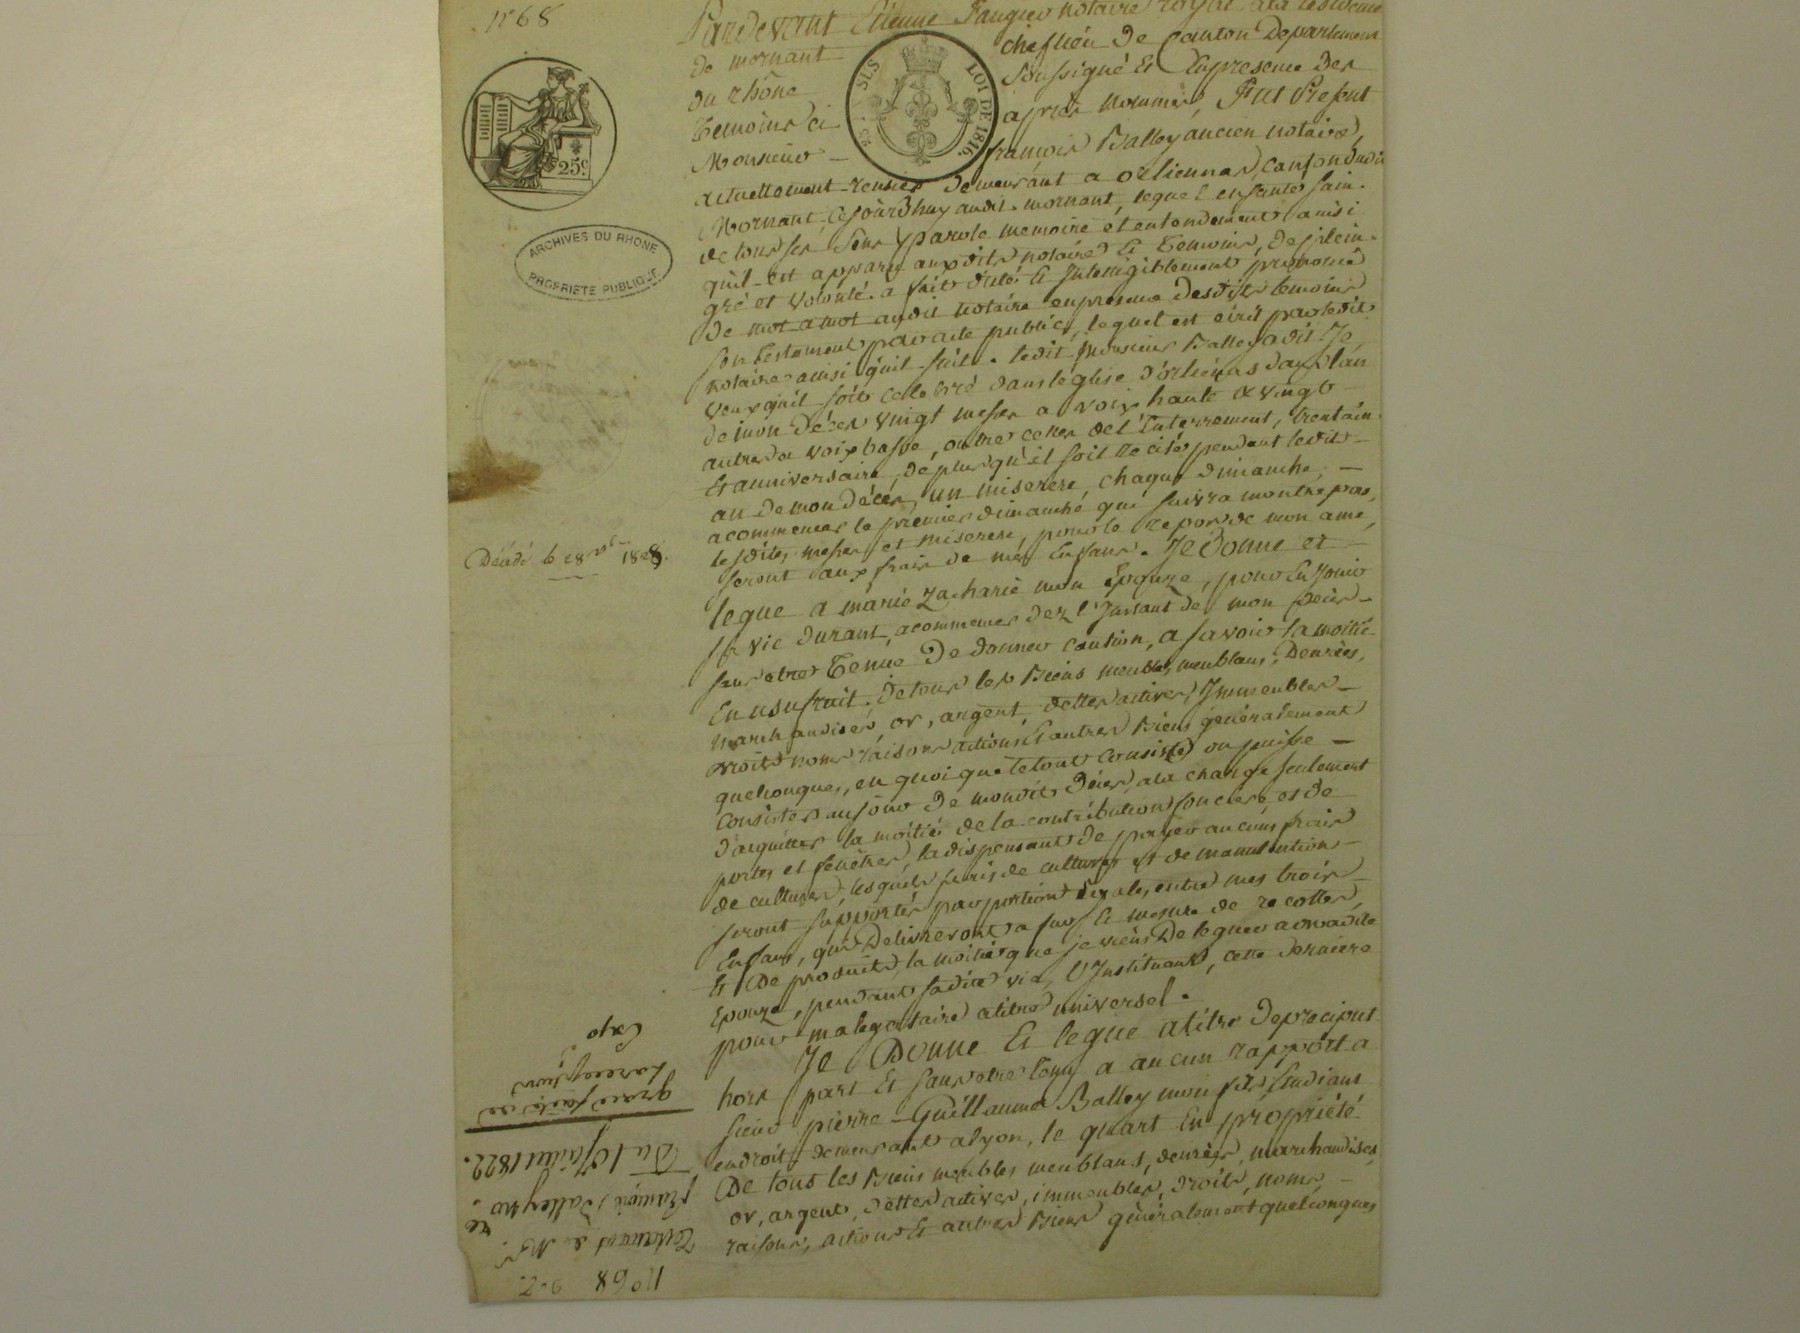 n° 68
Pardevant Etienne Faugier notaire royal ala residence
de mornant chef lieu de Canton Departement
du rhône Soussigné Et Enpresence des
temoins ci après nommés, Fut Present
Monsieur françois Balley ancien notaire,
actuellement rentier demeurant a orliennas, canton dudit
Mornant, cejourdhuy audit mornant, lequel enfanté sain
de tous ses Sens, parole memoire et entendement ainsi
quil est apparu auxdits notaire Et temoins, de soin
gré et volonté a fait dicté Et Intelligiblement prononcé
de mot amot audit notaire enpresence desdits temoins
son testament par acte public, lequel est écrit par ledit
notaire ainsi quil suit. ledit Monsieur Balley a dit Je
veux quil soit celebré dans léglise d'orliénas dans l'an
de mon décès vingt messes a voix haute & vingt
autres a voix basse, outre celles de l'Enterrement, trentain
Et anniversaire, de plus qu'il soit recité pendant ledit
an de mon décès, un miserere, chaque dimanche,
a commencer le premier dimanche qui suivra mon trépas,
lesdites messes et miserere, pour le repos de mon ame,
seront aux frais de mes Enfans. Je Donne et
legue a marie Zacharie mon Epouze, pour En Jouir
sa vie durant, acommencer dez l'Instant de mon decès
sans etre tenue de donner caution, a savoir la moitié
En usufruit, de tous les Biens meubles meublans, Denrées,
marchandises, or, argent, dettes actives, Immeubles
droits noms raisons actions Et autres Biens généralement
quelconques, en quoi que letout consiste ou puisse
consister aujour de mondit décès, ala charge seulement
d'acquitter la moitié de la contribution fonciere et de
portes et fenêtres, la dispensant de payer aucuns frais
de culture, lesquels frais de cultures et de manutention
seront supportés par portions Egales, entre mes trois
Enfans, qui Delivreront a fur Et mesure de recoltes,
Et De produits, la moitié que je viens De leguer a madite
Epouze, pendant sadite vie, l'Instituant, cette derniere
pour ma legataire atitre universel.
Je Donne Et legue atitre de preciput
hors part Et sans etre tenu a aucun rapport a
sieur pierre-Guillaume Balley mon fils Etudiant
endroit demeurant alyon, le quart En propriété
De tous les Biens meubles meublans, denrées, marchandises,
or, argent, dettes actives, immeubles, droits, noms,
raisons, actions Et autres Biens généralement quelconques
25c.
25 C. SUS
LOI DE 1816.
ARCHIVES DU RHONE
PROPRIETE PUBLIQUE
Décédé le 28 1828.
Testament de Mr.
françois Balley no.re
Du 10 Juillet 1822.
Expé
11068